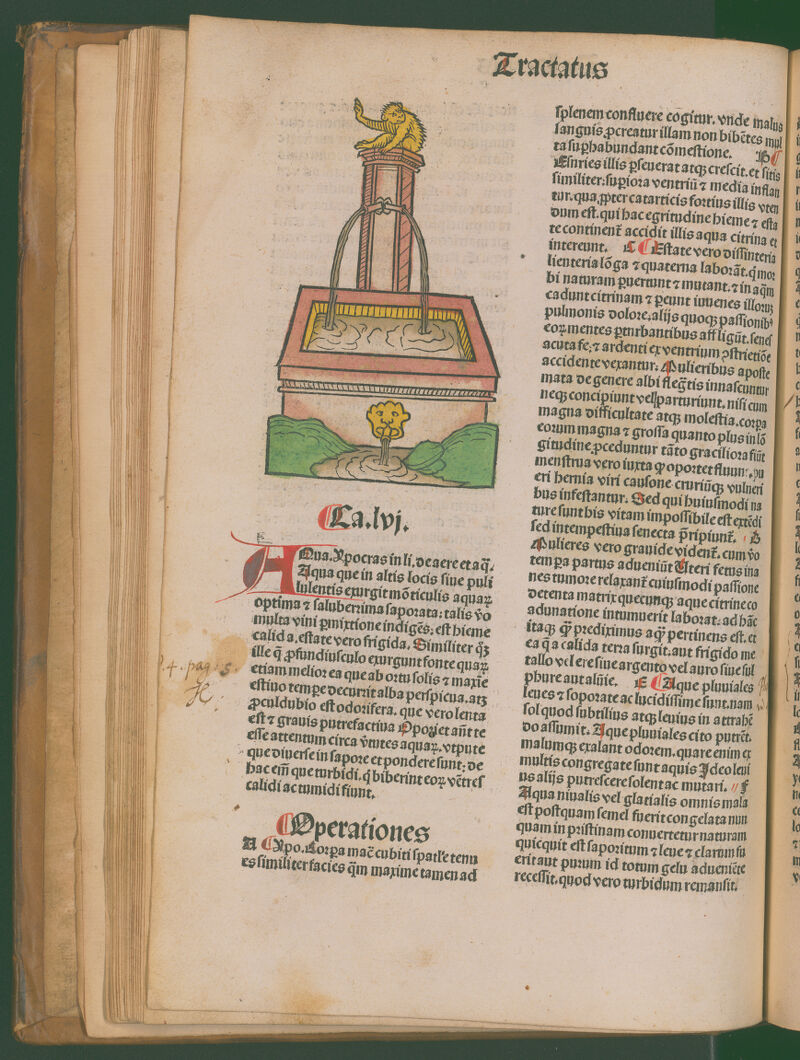 Tractatus
Ca.lvj.
AQua. Ypocras in li. de aere et aq̃.
Aqua que in altis locis siue pulu
lulentis exurgit mōticulis aquaꝝ
optima ⁊ saluberrima saporata: talis v̄o
multa vini ꝑmixtione indigēs: est hieme
calida, estate vero frigida. Similiter qꝫ
ille q̄ ꝓfundiusculo exurgunt fonte quaꝝ
etiam melior ea que ab ortu solis ⁊ maxīe
estiuo tempe decurrit alba perspicua. atꝫ
ꝓculdubio est odorifera. que vero lenta
est ⁊ grauis putrefactiua Opoꝛtet aūt te
esse attentum circa v̄tutes aquaꝝ. vtpute
que diuerse in sapore et pondere sunt: de
hac em̄ que turbidi. q̇ biberint eoꝝ vētres
calidi ac tumidi fiunt.
P.4. pag. 5.
Operationes
A Ypo. Corpa mac̄ cubiti spatl'e tenu
es similiter facies q̃m maxime tamen ad
splenem confluere cogitur. vnde malus
sanguis ꝓcreatur illam non bibētes mul
ta suꝑhabundant cōmestione. B
Esuries illis ꝑseuerat atqꝫ crescit. et sitis
similiter: suꝑiora ventriū ⁊ media inflan
tur. qua.ꝓpter catarticis fortius illis vten
dum est. qui hac egritudine hieme ⁊ esta
te continenť accidit illis aqua citrina et
intereunt. C Estate vero dissinteria
lienteria lōga ⁊ quaterna laborāt. q̇ mor
bi naturam ꝑuertunt ⁊ mutant. ⁊ in aq̄m
cadunt citrinam ⁊ ꝑeunt iuuenes illoruꝫ
pulmonis dolore. alijs quoqꝫ passionibꝰ
eoꝝ mentes ꝑturbantibus affligūt. senes
acuta fe: ⁊ ardenti ex ventrium ɔstrictiōe
accidente vexantur. Mulieribus aposte
mata de genere albi flegm̄tis innascuntur
neqꝫ concipiunt vel parturiunt. nisi cum
magna difficultate atqꝫ molestia. corpa
eorum magna ⁊ grossa quanto plus in lō
gitudine ꝓceduntur tāto graciliora fiūt
menstrua vero iuxta ꝙ oportet fluunt. pu
eri hernia viri causone cruriūqꝫ vulneri
bus infestantur. Sed qui huiusmodi na
ture sunt his vitam impossibile est extēdi
sed intempestiua senecta p̄ripiunť. D
Mulieres vero grauide videnť. cum v̄o
tempa partus adueniūt Uteri fetus ina
nes tumore relaxanť cuiusmodi passione
detenta matrix quecunqꝫ aque citrine co
adunatione intumuerit laborat. ad hāc
itaqꝫ q̄ꝫ prediximus aq̄ꝫ pertinens est. et
ea q̄ a calida terra surgit. aut frigido me
tallo vel ere siue argento vel auro siue sul
phure aut alūie. E Aque pluuiales
leues ⁊ soporate ac lucidissime sunt. nam
sol quod subtilius atqꝫ leuius in attrahē
do assumit. Aque pluuiales cito putrēt.
malumqꝫ exalant odorem. quare enim ex
multis congregate sunt aquis Ideo leui
us alijs putrescere solent ac mutari. F
Aqua niualis vel glatialis omnis mala
est postquam semel fuerit congelata nun
quam in pristinam conuertetur naturam
quicquit est saporitum ⁊ leue ⁊ clarum fu
erit aut purum id totum gelu adueniēte
recessit. quod vero turbidum remansit.